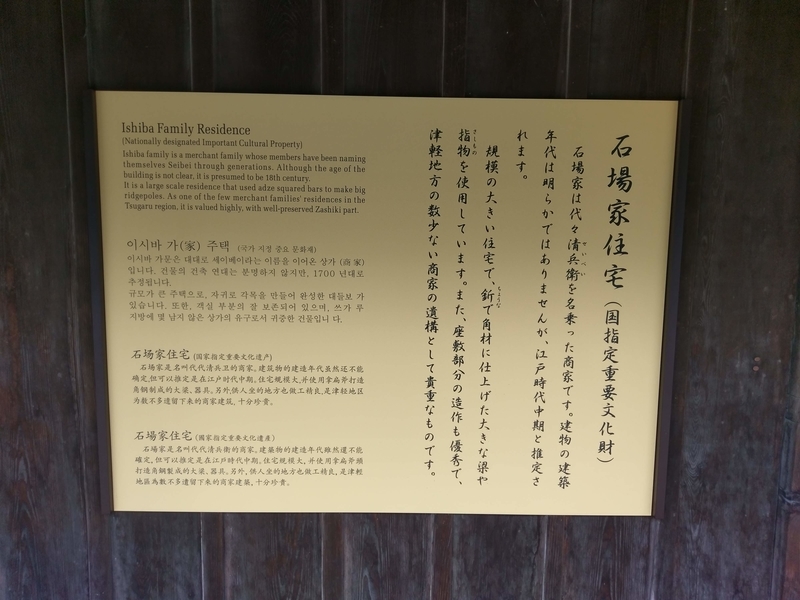 石場家住宅（国指定重要文化財）
石場家は代々清兵衛を名乗った商家です。建物の建築
せいべい
年代は明らかではありませんが、江戸時代中期と推定さ
れます。
規模の大きい住宅で、釿で角材に仕上げた大きな梁や
ちょうな
指物を使用しています。また、座敷部分の造作も優秀で、
さしもの
津軽地方の数少ない商家の遺構として貴重なものです。
Ishiba Family Residence
(Nationally designated Important Cultural Property)
Ishiba family is a merchant family whose members have been naming
themselves Seibei through generations. Although the age of the
building is not clear, it is presumed to be 18th century.
It is a large scale residence that used adze squared bars to make big
ridgepoles. As one of the few merchant families' residences in the
Tsugaru region, it is valued highly, with well-preserved Zashiki part.
이시바 가(家) 주택 (국가 지정 중요 문화재)
이시바 가문은 대대로 세이베이라는 이름을 이어온 상가 (商家)
입니다. 건물의 건축 연대는 분명하지 않지만, 1700 년대로
추정됩니다.
규모가 큰 주택으로, 자귀로 각목을 만들어 완성한 대들보 가
있습니다. 또한, 객실 부분의 잘 보존되어 있으며, 쓰가 루
지방에 몇 남지 않은 상가의 유구로서 귀중한 건물입니 다.
石场家住宅 (国家指定重要文化遗产)
石场家是名叫代代清兵卫的商家。建筑物的建造年代虽然还不能
确定,但可以推定是在江户时代中期。住宅规模大,并使用拿扁斧打造
角钢制成的大梁、器具。另外,供人坐的地方也做工精良,是津轻地区
为数不多遗留下来的商家建筑,十分珍贵。
石場家住宅 (國家指定重要文化遺産)
石場家是名叫代代清兵衛的商家。建築物的建造年代雖然還不能
確定,但可以推定是在江戸時代中期。住宅規模大,并使用拿扁斧頼
打造角鋼製成的大梁、器具。另外,供人坐的地方也做工精良,是津軽
地區為數不多遺留下来的商家建築,十分珍貴。